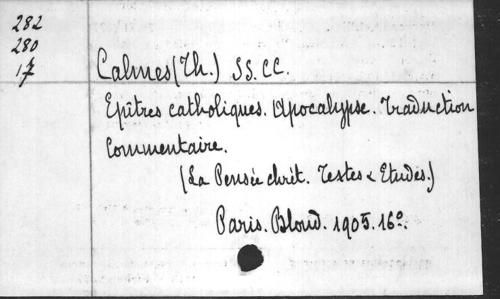 282
280
17
Calmes (Th.) SS. CC.
Epîtres catholiques. Apocalypse. Traduction
Commentaire.
(La Pensée chrét. Textes & Etudes.)
Paris. Bloud. 1905. 16º.